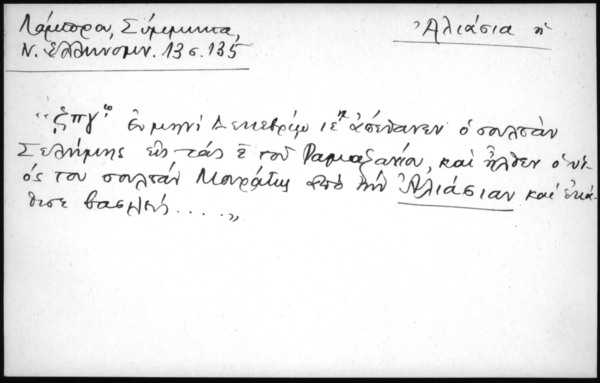 Λάμπρου, Σύμμικτα,
Ν. Ἑλληνομν. 13 σ. 135
Ἀλιάσια ἡ
"͵ζπγʹ Ἐν μηνὶ Δεκεβρίῳ ιεῃ ἀπέθανεν ὁ σουλτὰν
Σελήμης εἰς τὰς ε̄ τοῦ Ραμαζανίου, καὶ ἦλθεν ὁ υἱ-
ός του σουλτὰν Μουράτης ἀπὸ τὴν Ἀλιάσιαν καὶ ἐκά-
θισε βασιλεὺς....."